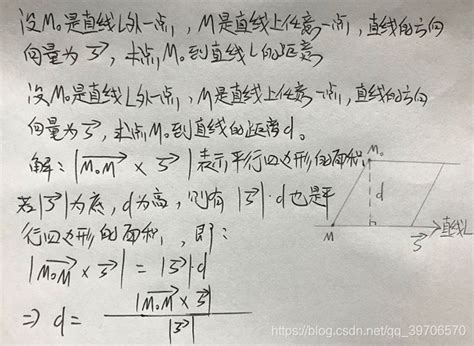 设M₀是直线L外一点,M是直线上任意一点,直线的方向
向量为s⃗,求点M₀到直线L的距离
设M₀是直线L外一点,M是直线上任意一点,直线的方向
向量为s⃗,求点M₀到直线的距离d。
解:|M₀M⃗ × s⃗|表示平行四边形的面积,
若|s⃗|为底,d为高,则有|s⃗|·d也是平
行四边形的面积,即:
|M₀M⃗ × s⃗| = |s⃗|·d
⇒ d = |M₀M⃗ × s⃗| / |s⃗|
M₀
d
M
s⃗
直线L
https://blog.csdn.net/qq_39706570